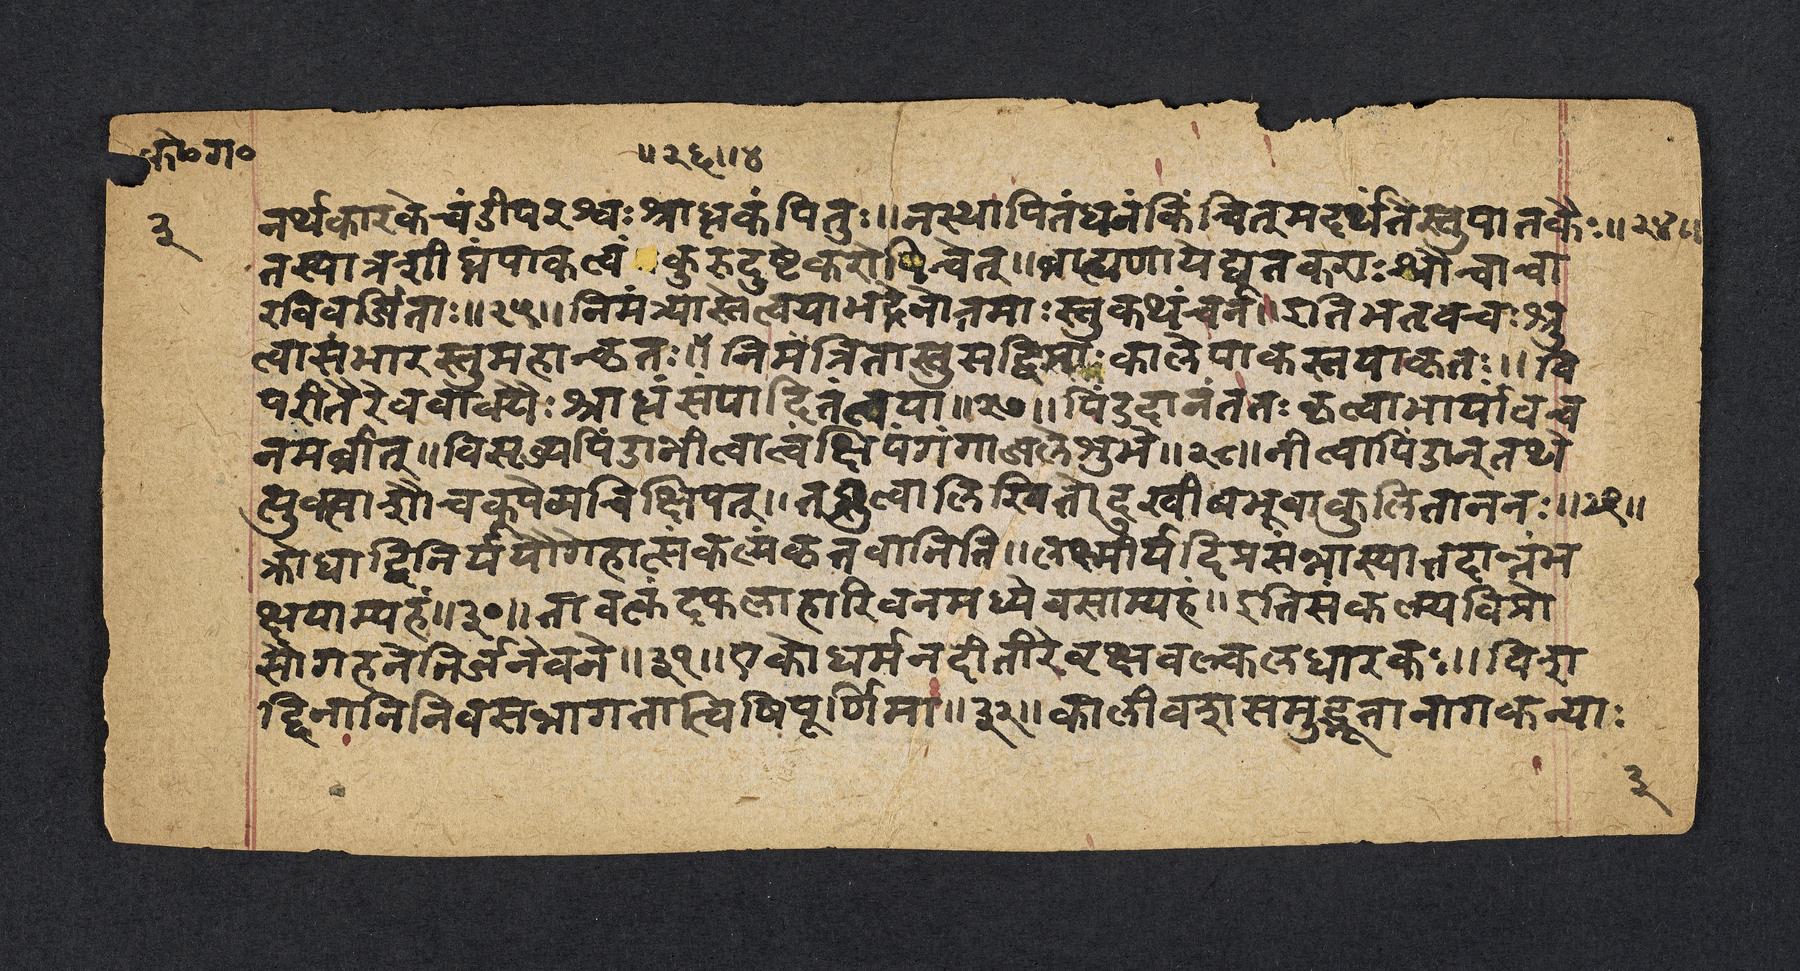 के०ग०
॥२६॥४
३
नर्थकारके चंडीपरश्वः श्राद्धकं पितुः॥ नस्थापितं धनं किंचित् मदर्थं तैस्तु पातकैः॥२४॥
तस्यान्नशीघ्रं पाकत्वं कुरु दुष्टे करोषि चेत्॥ ब्राह्मणा ये द्यूतकराः शौचाचा
रविवर्जिताः॥२५॥ निमंत्र्यास्ते त्वया भद्रे नोत्तमाः स्तु कथंचन॥ इति भतृवचः श्रु
त्वा संभारस्तु महान्कृतः॥ निमंत्रितास्तु सद्विप्राः काले पाकस्तया कृतः॥ वि
परीतैरेव वाक्यैः श्राद्धं सपादितं त्वया॥२७॥ पिंडदानं ततः कृत्वा भार्यां वच
नमब्रवीत्॥ विसृज्य पिंडान्नीत्वा त्वं क्षिप गंगाजले शुभे॥२८॥ नीत्वा पिंडान् तथे
त्युक्त्वा शौचकूपे मचिक्षिपत्॥ तछ्रुत्वा लिखितो दुखी बभूवाकुलिताननः॥२९॥
क्रोधाद्विनिर्ययौ गेहात्संकल्मं कृतवानिति॥ लक्ष्मीर्यदि प्रसंन्नास्यात्तदान्नंभ
क्षयाम्यहं॥३०॥ तावत्कंदफलाहारि वनमध्ये वसाम्यहं॥ इति संकल्प्य विप्रो
सौ गहने निर्जने वने॥३१॥ एको धर्मनदीतीरे वृक्षवल्कलधारकः॥ विशा
द्दिनानि निवसन्नागतात्विषिपूर्णिमा॥३२॥ कालीवशसमुद्भूता नागकन्याः
३